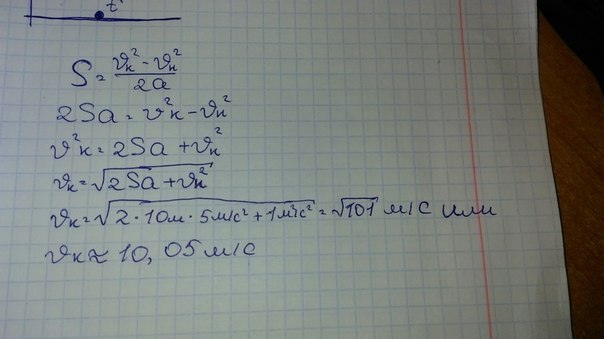 t
S = (υк² - υн²) / 2a
2Sa = υ²к - υн²
υ²к = 2Sa + υн²
υк = √(2Sa + υн²)
υк = √(2·10м·5м/с² + 1м²/с²) = √101 м/с или
υк ≈ 10,05 м/с